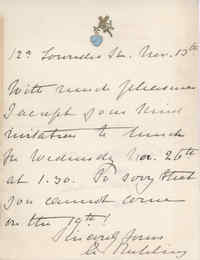 Nov. 13th
With much pleasure
I accept your kind
invitation to lunch
for Wednesday Nov. 26th
at 1.30. so sorry that
you cannot come
on the 19th!
Sincerely yours